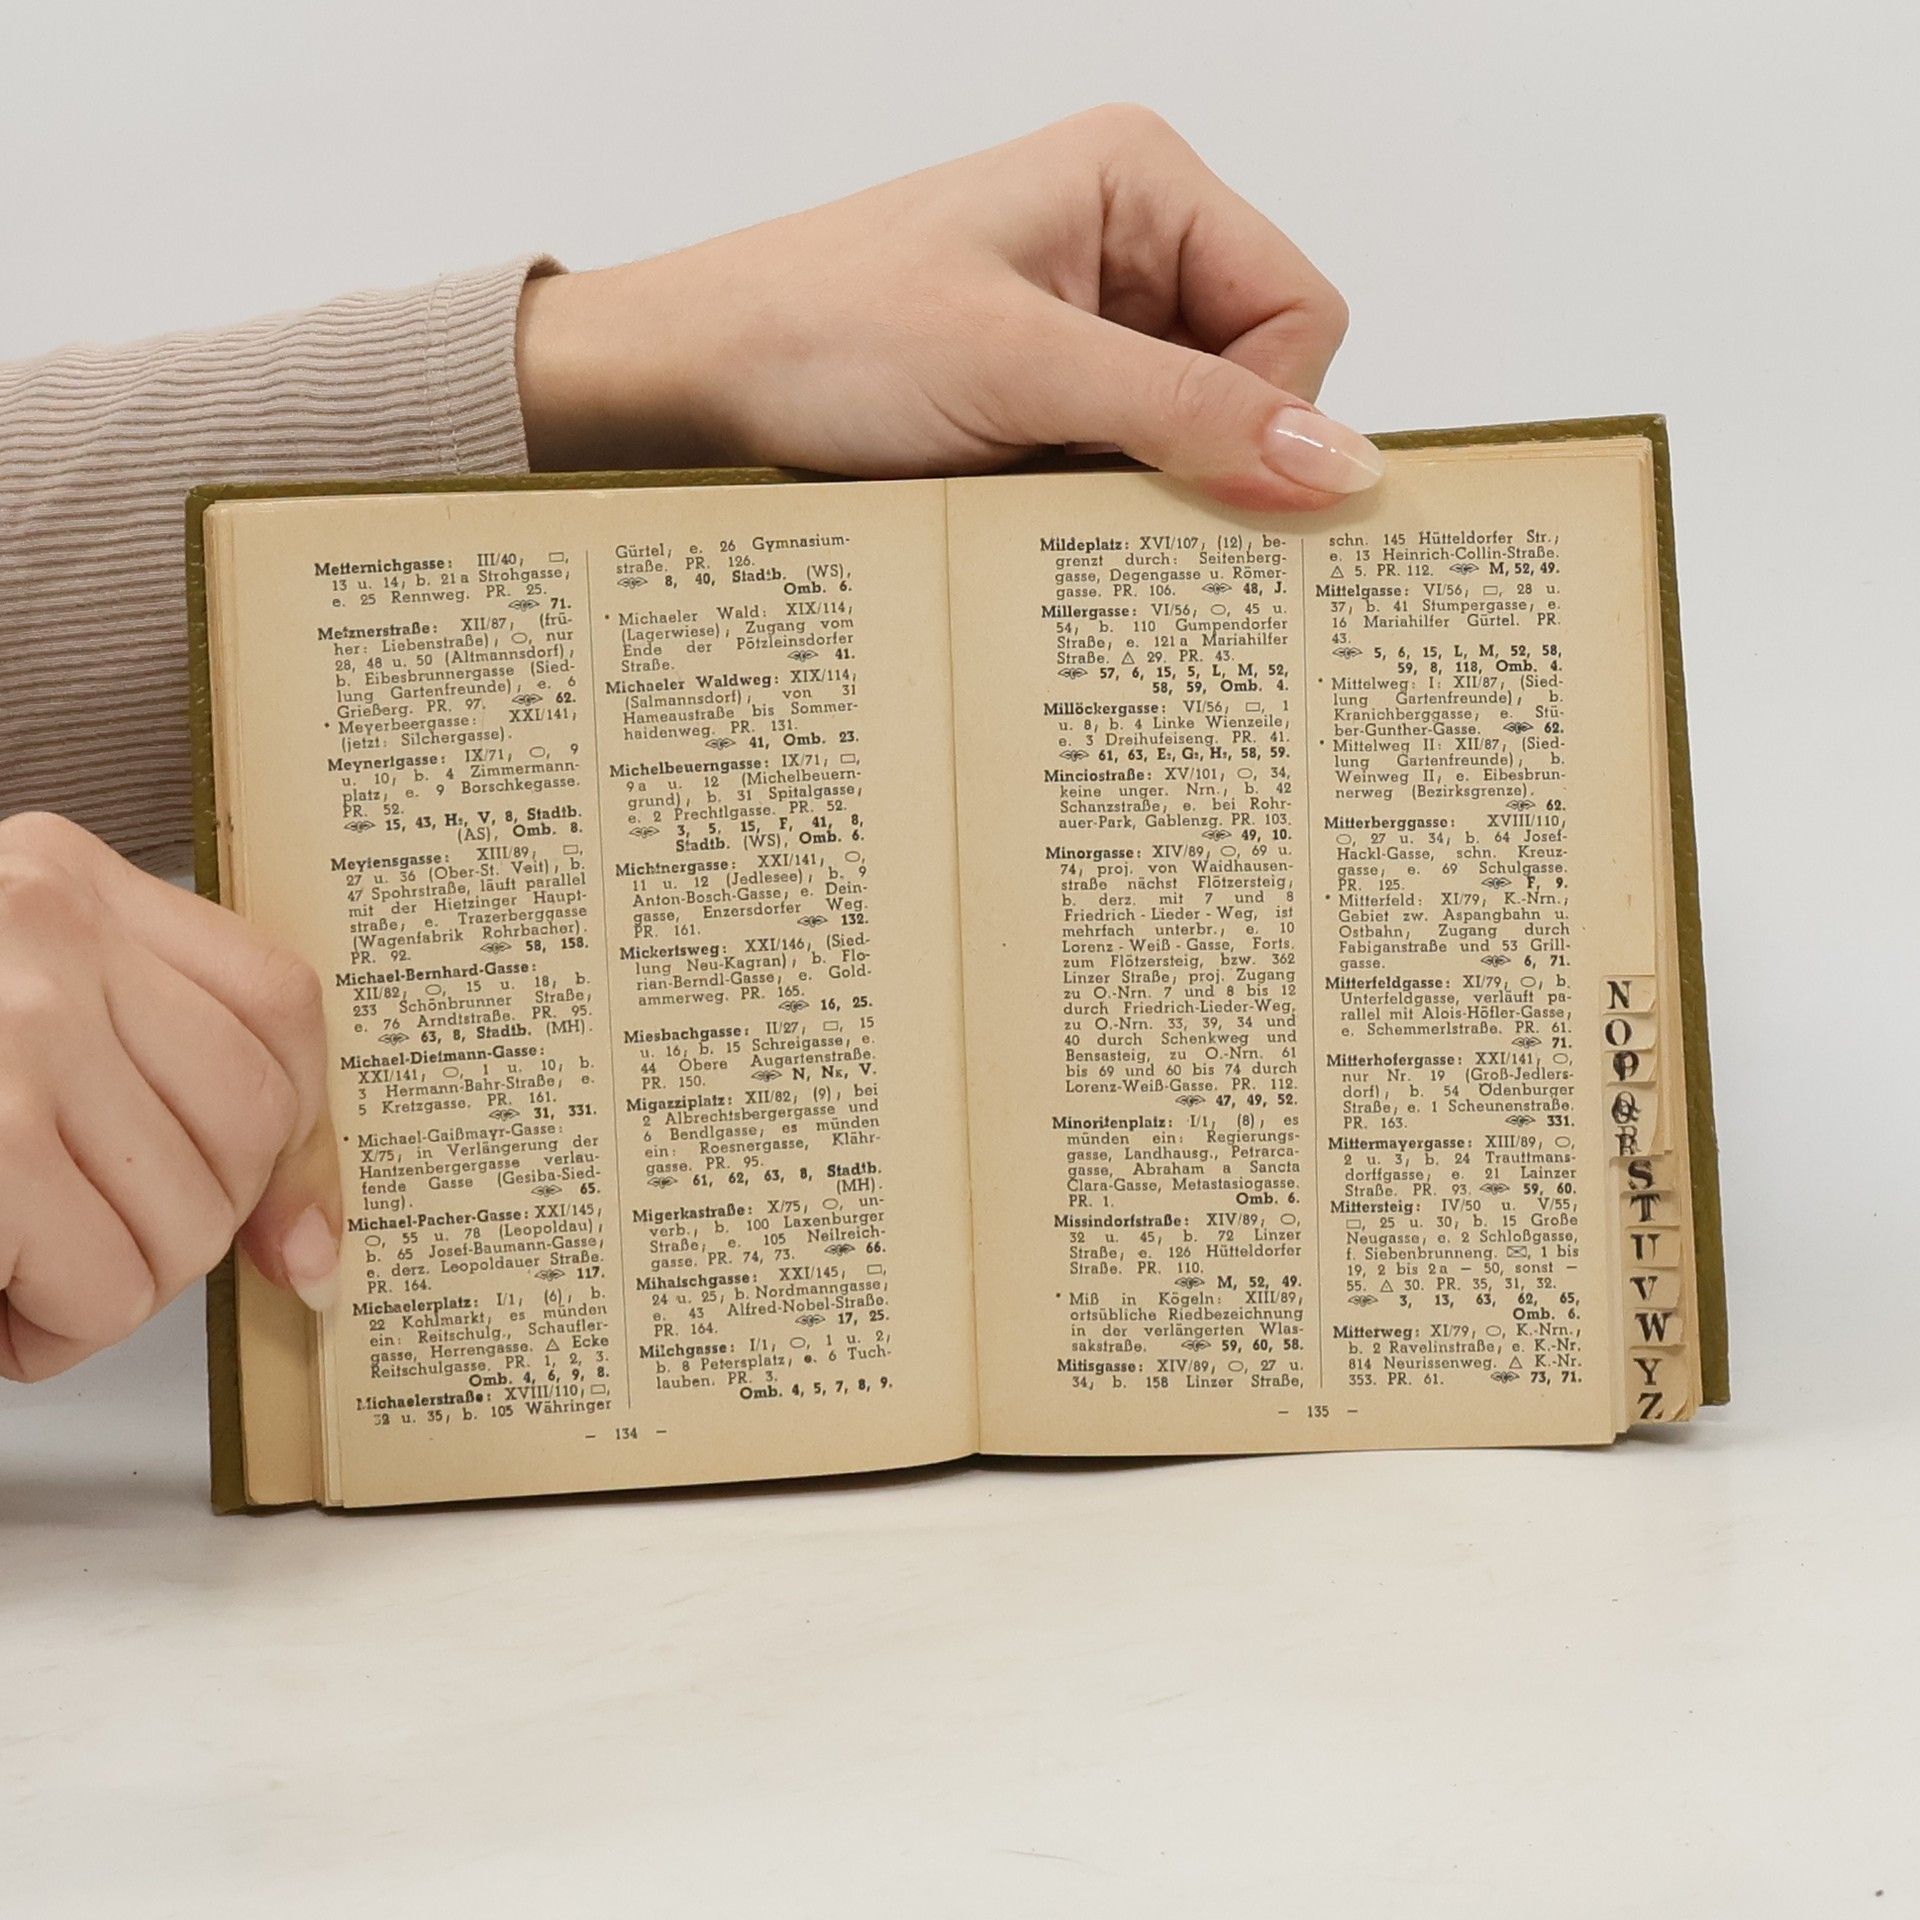 Metternichgasse: III/40, ▭,
13 u. 14, b. 21a Strohgasse,
e. 25 Rennweg. PR. 25.
71.
Metznerstraße: XII/87, (frü-
her: Liebenstraße), ⬭, nur
28, 48 u. 50 (Altmannsdorf),
b. Eibesbrunnergasse (Sied-
lung Gartenfreunde), e. 6
Grießerg. PR. 97. 62.
* Meyerbeergasse: XXI/141,
(jetzt: Silchergasse).
Meynertgasse: IX/71, ⬭, 9
u. 10, b. 4 Zimmermann-
platz, e. 9 Borschkegasse.
PR. 52.
15, 43, H₂, V, 8, Stadtb.
(AS), Omb. 8.
Meytensgasse: XIII/89, ▭,
27 u. 36 (Ober-St. Veit), b.
47 Spohrstraße, läuft parallel
mit der Hietzinger Haupt-
straße, e. Trazerberggasse
(Wagenfabrik Rohrbacher).
PR. 92. 58, 158.
Michael-Bernhard-Gasse:
XII/82, ⬭, 15 u. 18, b.
233 Schönbrunner Straße,
e. 76 Arndtstraße. PR. 95.
63, 8, Stadtb. (MH).
Michael-Dietmann-Gasse:
XXI/141, ⬭, 1 u. 10, b.
3 Hermann-Bahr-Straße, e.
5 Kretzgasse. PR. 161.
31, 331.
* Michael-Gaißmayr-Gasse:
X/75, in Verlängerung der
Hantzenbergergasse verlau-
fende Gasse (Gesiba-Sied-
lung). 65.
Michael-Pacher-Gasse: XXI/145,
⬭, 55 u. 78 (Leopoldau),
b. 65 Josef-Baumann-Gasse,
e. derz. Leopoldauer Straße.
PR. 164. 117.
Michaelerplatz: I/1, (6), b.
22 Kohlmarkt, es münden
ein: Reitschulg., Schaufler-
gasse, Herrengasse. △ Ecke
Reitschulgasse. PR. 1, 2, 3.
Omb. 4, 6, 9, 8.
Michaelerstraße: XVIII/110, ▭,
32 u. 35, b. 105 Währinger
Gürtel, e. 26 Gymnasium-
straße. PR. 126.
8, 40, Stadtb. (WS),
Omb. 6.
* Michaeler Wald: XIX/114,
(Lagerwiese), Zugang vom
Ende der Pötzleinsdorfer
Straße. 41.
Michaeler Waldweg: XIX/114,
(Salmannsdorf), von 31
Hameaustraße bis Sommer-
haidenweg. PR. 131.
41, Omb. 23.
Michelbeuerngasse: IX/71, ▭,
9a u. 12 (Michelbeuern-
grund), b. 31 Spitalgasse,
e. 2 Prechtlgasse. PR. 52.
3, 5, 15, F, 41, 8,
Stadtb. (WS), Omb. 6.
Michtnergasse: XXI/141, ⬭,
11 u. 12 (Jedlesee), b. 9
Anton-Bosch-Gasse, e. Dein-
gasse, Enzersdorfer Weg.
PR. 161. 132.
Mickertsweg: XXI/146, (Sied-
lung Neu-Kagran), b. Flo-
rian-Berndl-Gasse, e. Gold-
ammerweg. PR. 165.
16, 25.
Miesbachgasse: II/27, ▭, 15
u. 16, b. 15 Schreigasse, e.
44 Obere Augartenstraße.
PR. 150. N, Nᴋ, V.
Migazziplatz: XII/82, (9), bei
2 Albrechtsbergergasse und
6 Bendlgasse, es münden
ein: Roesnergasse, Klähr-
gasse. PR. 95.
61, 62, 63, 8, Stadtb.
(MH).
Migerkastraße: X/75, ⬭, un-
verb., b. 100 Laxenburger
Straße, e. 105 Neilreich-
gasse. PR. 74, 73. 66.
Mihatschgasse: XXI/145, ▭,
24 u. 25, b. Nordmanngasse,
e. 43 Alfred-Nobel-Straße.
PR. 164. 17, 25.
Milchgasse: I/1, ⬭, 1 u. 2,
b. 8 Petersplatz, e. 6 Tuch-
lauben. PR. 3.
Omb. 4, 5, 7, 8, 9.
— 134 —
Mildeplatz: XVI/107, (12), be-
grenzt durch: Seitenberg-
gasse, Degengasse u. Römer-
gasse. PR. 106. 48, J.
Millergasse: VI/56, ⬭, 45 u.
54, b. 110 Gumpendorfer
Straße, e. 121a Mariahilfer
Straße. △ 29. PR. 43.
57, 6, 15, 5, L, M, 52,
58, 59, Omb. 4.
Millöckergasse: VI/56, ▭, 1
u. 8, b. 4 Linke Wienzeile,
e. 3 Dreihufeiseng. PR. 41.
61, 63, E₂, G₂, H₂, 58, 59.
Minciostraße: XV/101, ⬭, 34,
keine unger. Nrn., b. 42
Schanzstraße, e. bei Rohr-
auer-Park, Gablenzg. PR. 103.
49, 10.
Minorgasse: XIV/89, ⬭, 69 u.
74, proj. von Waidhausen-
straße nächst Flötzersteig,
b. derz. mit 7 und 8
Friedrich-Lieder-Weg, ist
mehrfach unterbr., e. 10
Lorenz-Weiß-Gasse, Forts.
zum Flötzersteig, bzw. 362
Linzer Straße, proj. Zugang
zu O.-Nrn. 7 und 8 bis 12
durch Friedrich-Lieder-Weg,
zu O.-Nrn. 33, 39, 34 und
40 durch Schenkweg und
Bensasteig, zu O.-Nrn. 61
bis 69 und 60 bis 74 durch
Lorenz-Weiß-Gasse. PR. 112.
47, 49, 52.
Minoritenplatz: I/1, (8), es
münden ein: Regierungs-
gasse, Landhausg., Petrarca-
gasse, Abraham a Sancta
Clara-Gasse, Metastasiogasse.
PR. 1. Omb. 6.
Missindorfstraße: XIV/89, ⬭,
32 u. 45, b. 72 Linzer
Straße, e. 126 Hütteldorfer
Straße. PR. 110.
M, 52, 49.
* Miß in Kögeln: XIII/89,
ortsübliche Riedbezeichnung
in der verlängerten Wlas-
sakstraße. 59, 60, 58.
Mitisgasse: XIV/89, ⬭, 27 u.
34, b. 158 Linzer Straße,
schn. 145 Hütteldorfer Str.,
e. 13 Heinrich-Collin-Straße.
△ 5. PR. 112. M, 52, 49.
Mittelgasse: VI/56, ▭, 28 u.
37, b. 41 Stumpergasse, e.
16 Mariahilfer Gürtel. PR.
43.
5, 6, 15, L, M, 52, 58,
59, 8, 118, Omb. 4.
* Mittelweg: I: XII/87, (Sied-
lung Gartenfreunde), b.
Kranichberggasse, e. Stü-
ber-Gunther-Gasse. 62.
* Mittelweg II: XII/87, (Sied-
lung Gartenfreunde), b.
Weinweg II, e. Eibesbrun-
nerweg (Bezirksgrenze).
62.
Mitterberggasse: XVIII/110,
⬭, 27 u. 34, b. 64 Josef-
Hackl-Gasse, schn. Kreuz-
gasse, e. 69 Schulgasse.
PR. 125. F, 9.
* Mitterfeld: XI/79, K.-Nrn.,
Gebiet zw. Aspangbahn u.
Ostbahn, Zugang durch
Fabiganstraße und 53 Grill-
gasse. 6, 71.
Mitterfeldgasse: XI/79, ⬭, b.
Unterfeldgasse, verläuft pa-
rallel mit Alois-Höfler-Gasse,
e. Schemmerlstraße. PR. 61.
71.
Mitterhofergasse: XXI/141, ⬭,
nur Nr. 19 (Groß-Jedlers-
dorf), b. 54 Ödenburger
Straße, e. 1 Scheunenstraße.
PR. 163. 331.
Mittermayergasse: XIII/89, ⬭,
2 u. 3, b. 24 Trauttmans-
dorffgasse, e. 21 Lainzer
Straße. PR. 93. 59, 60.
Mittersteig: IV/50 u. V/55,
▭, 25 u. 30, b. 15 Große
Neugasse, e. 2 Schloßgasse,
f. Siebenbrunneng. ✉, 1 bis
19, 2 bis 2a — 50, sonst —
55. △ 30. PR. 35, 31, 32.
3, 13, 63, 62, 65,
Omb. 6.
Mitterweg: XI/79, ⬭, K.-Nrn.,
b. 2 Ravelinstraße, e. K.-Nr.
814 Neurissenweg. △ K.-Nr.
353. PR. 61. 73, 71.
— 135 —
N
O
P
Q
R
S
T
U
V
W
Y
Z